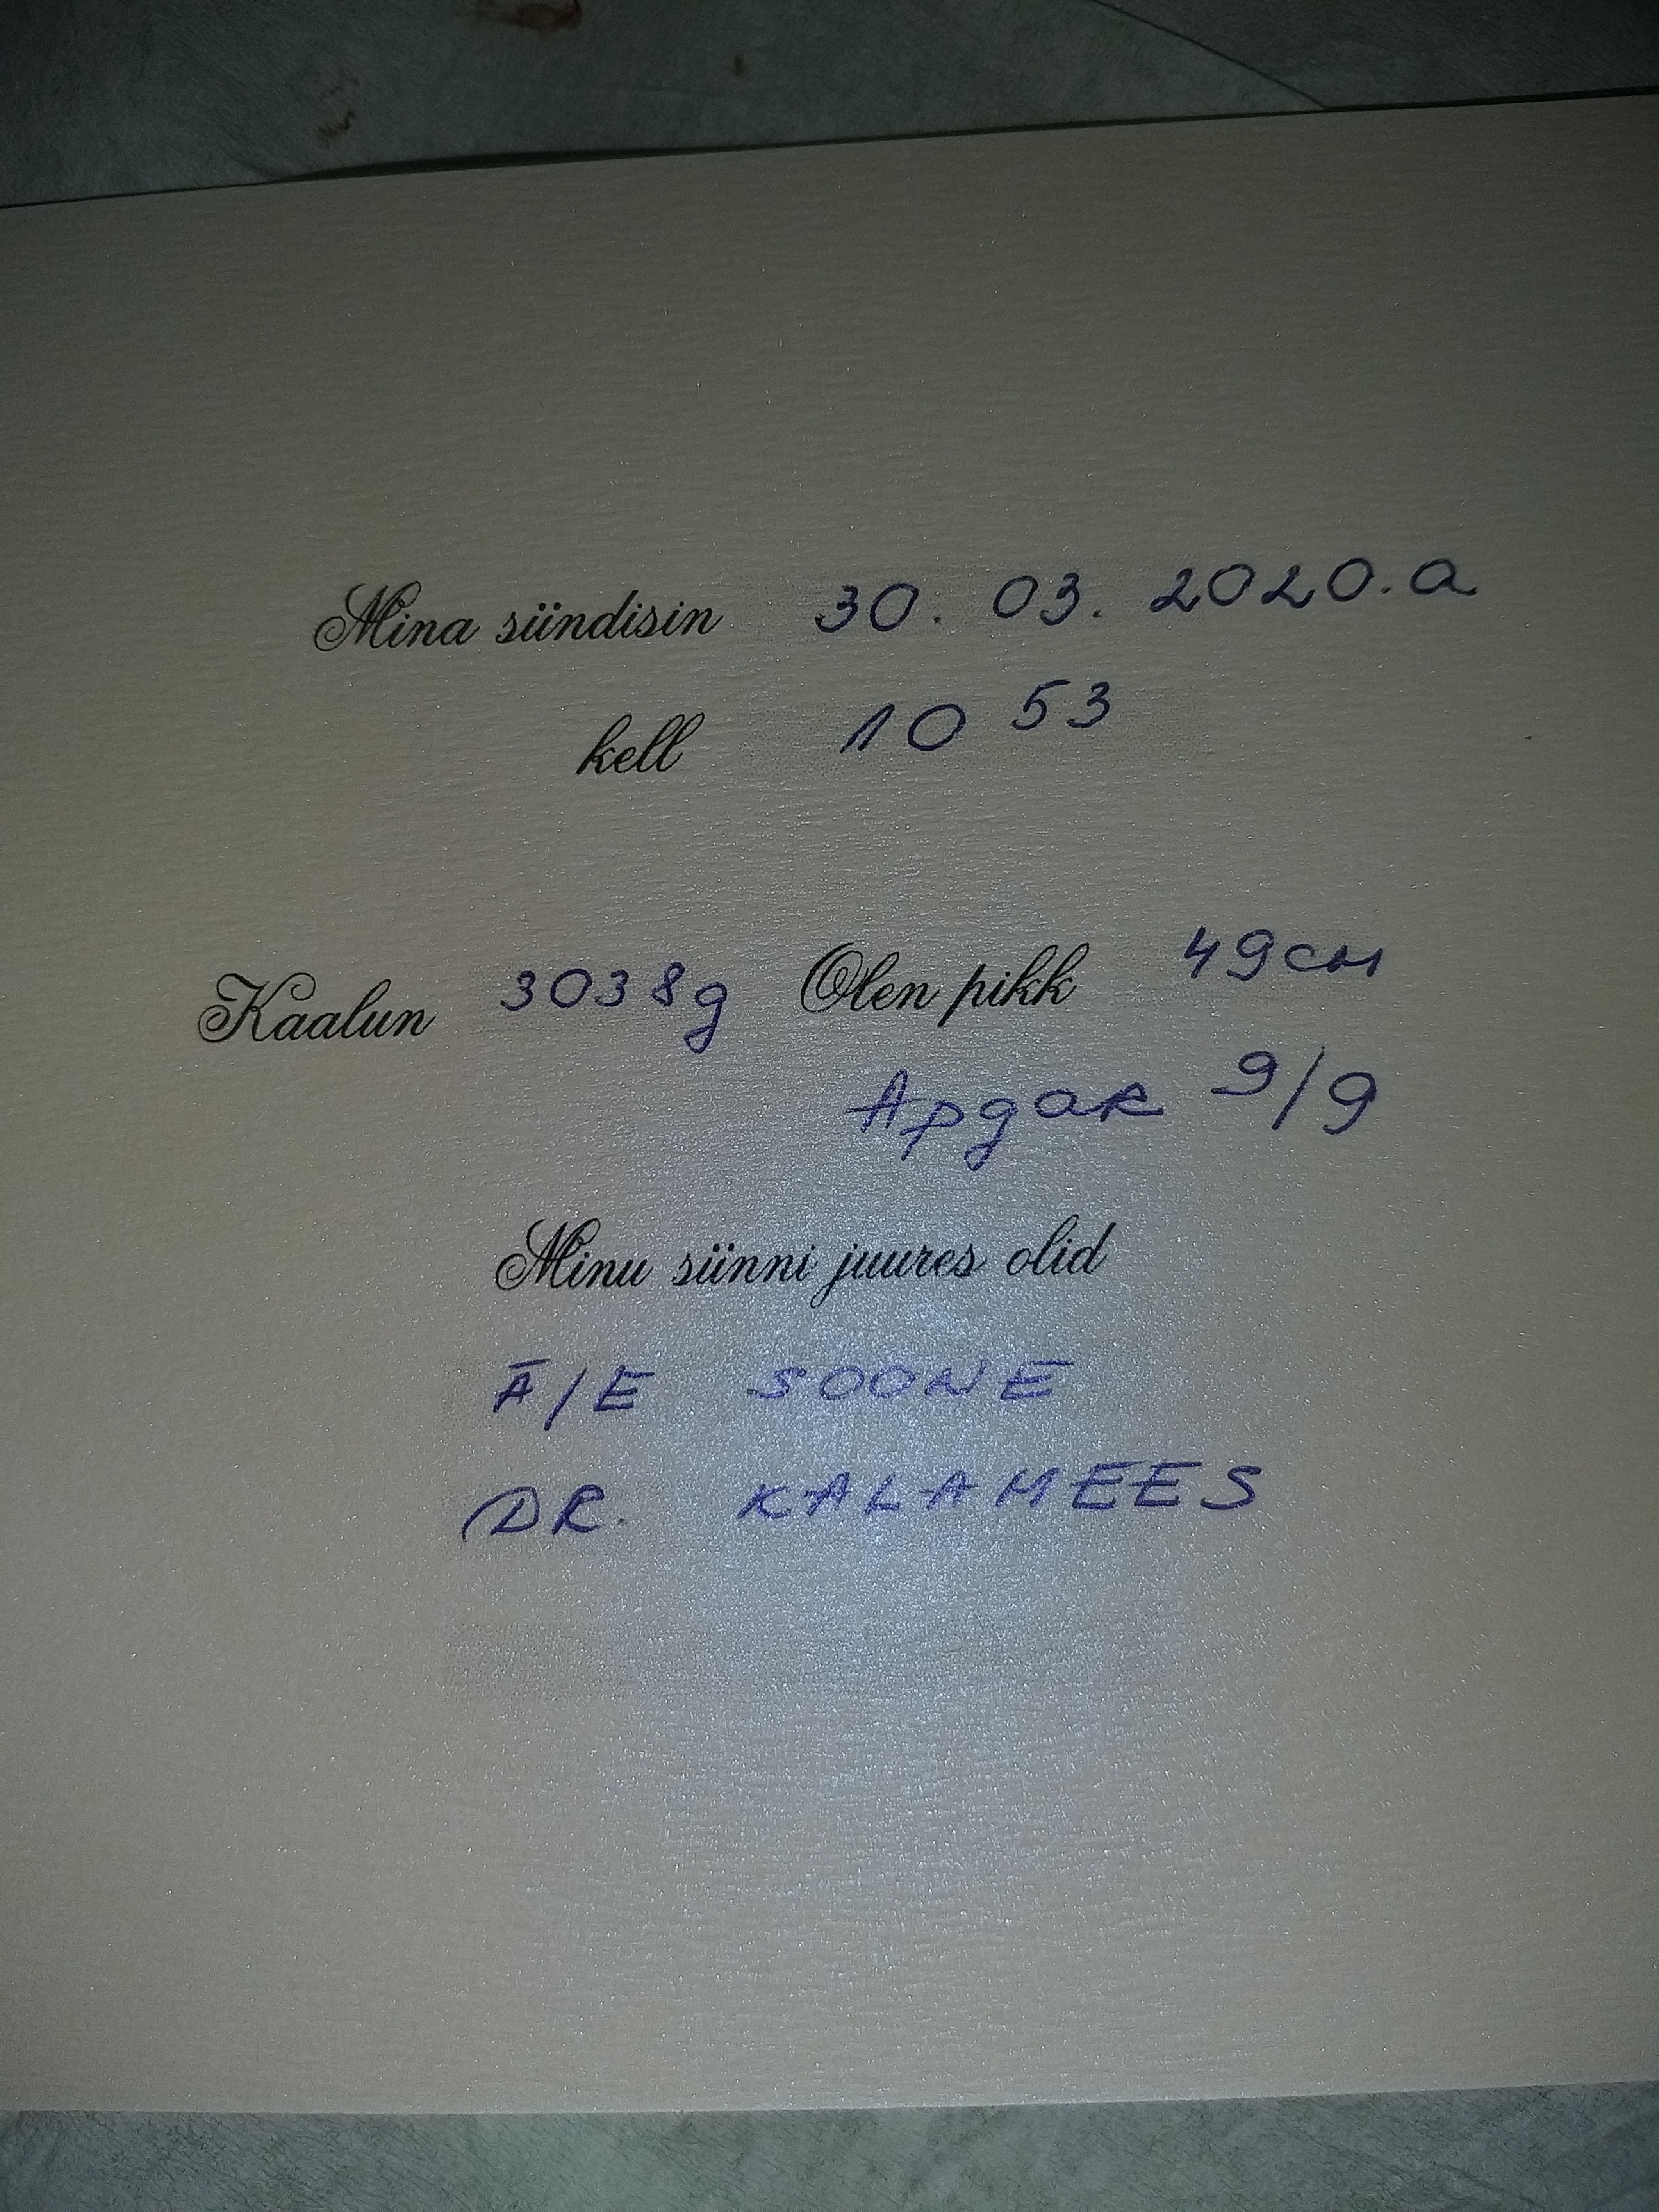 Mina sündisin 30. 03. 2020.a
kell 10 53
Kaalun 3038g Olen pikk 49cm
Apgar 9/9
Minu sünni juures olid
Ä/E SOONE
DR. KALAMEES